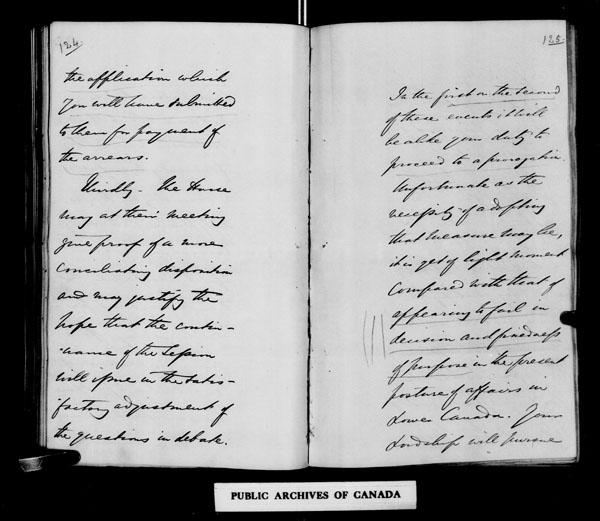 124
the application which
you will have submitted
to them for payment of
the arrears.
Thirdly - The House
may at their meeting
give proof of a more
conciliating disposition
and may justify the
hope that the contin-
-uance of the Session
will issue in the satis-
factory adjustment of
the questions in debate.
125.
In the first or the second
of these events it will
be alike your duty to
proceed to a prorogation.
Unfortunate as the
necessity of adopting
that measure may be,
it is yet of light moment
compared with that of
appearing to fail in
decision and firmness
of purpose in the present
posture of affairs in
Lower Canada. Your
Lordship will pursue
PUBLIC ARCHIVES OF CANADA